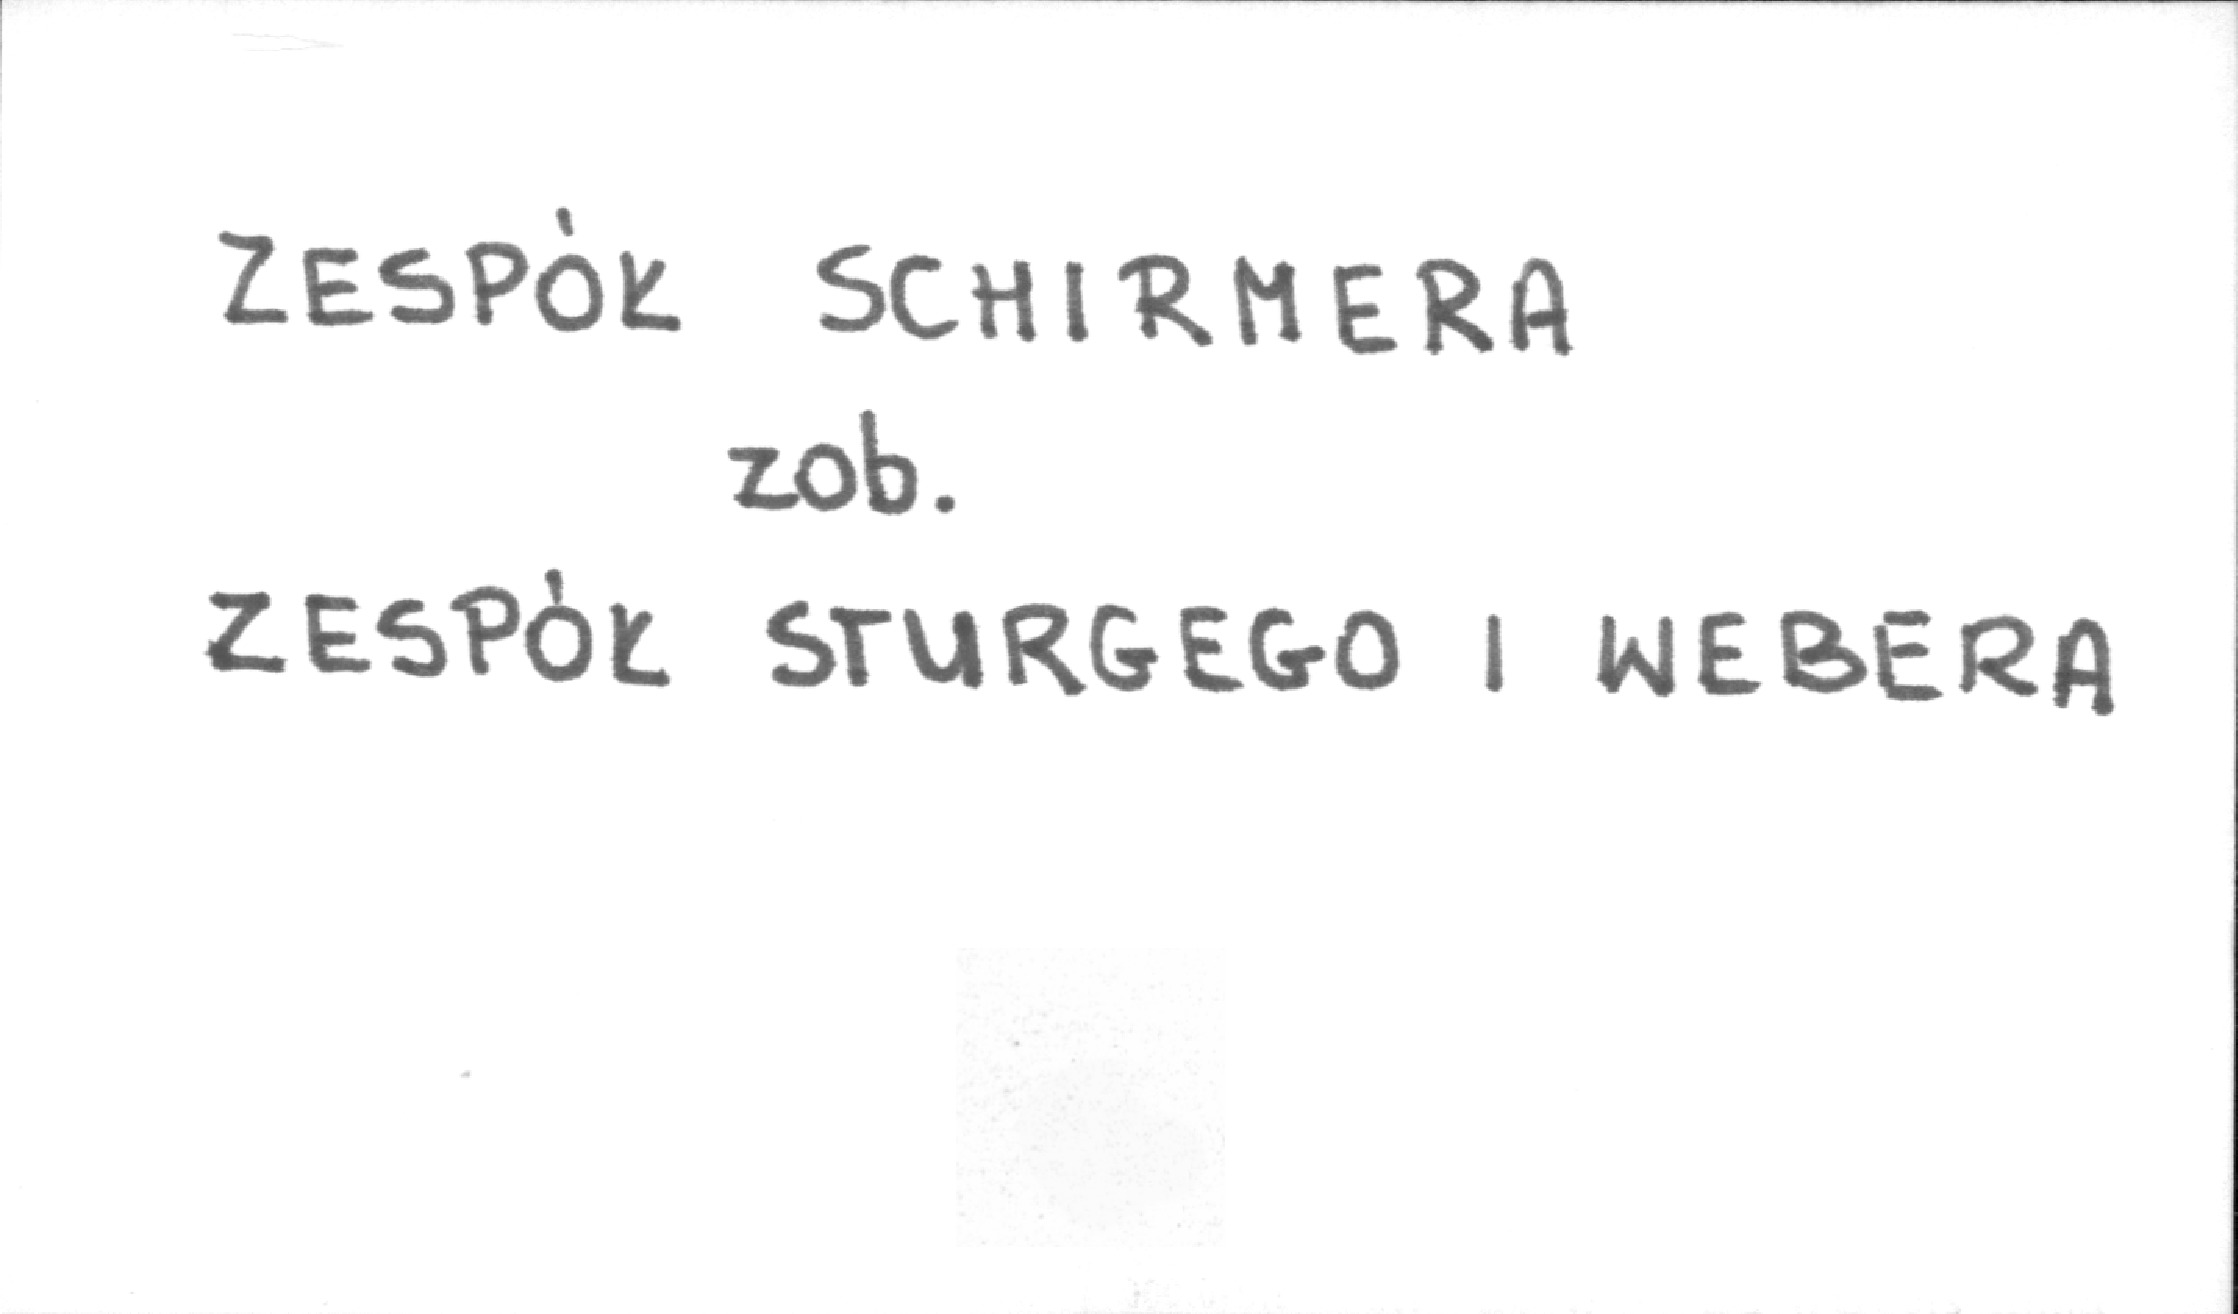 ZESPÓŁ SCHIRMERA
zob.
ZESPÓŁ STURGEGO I WEBERA